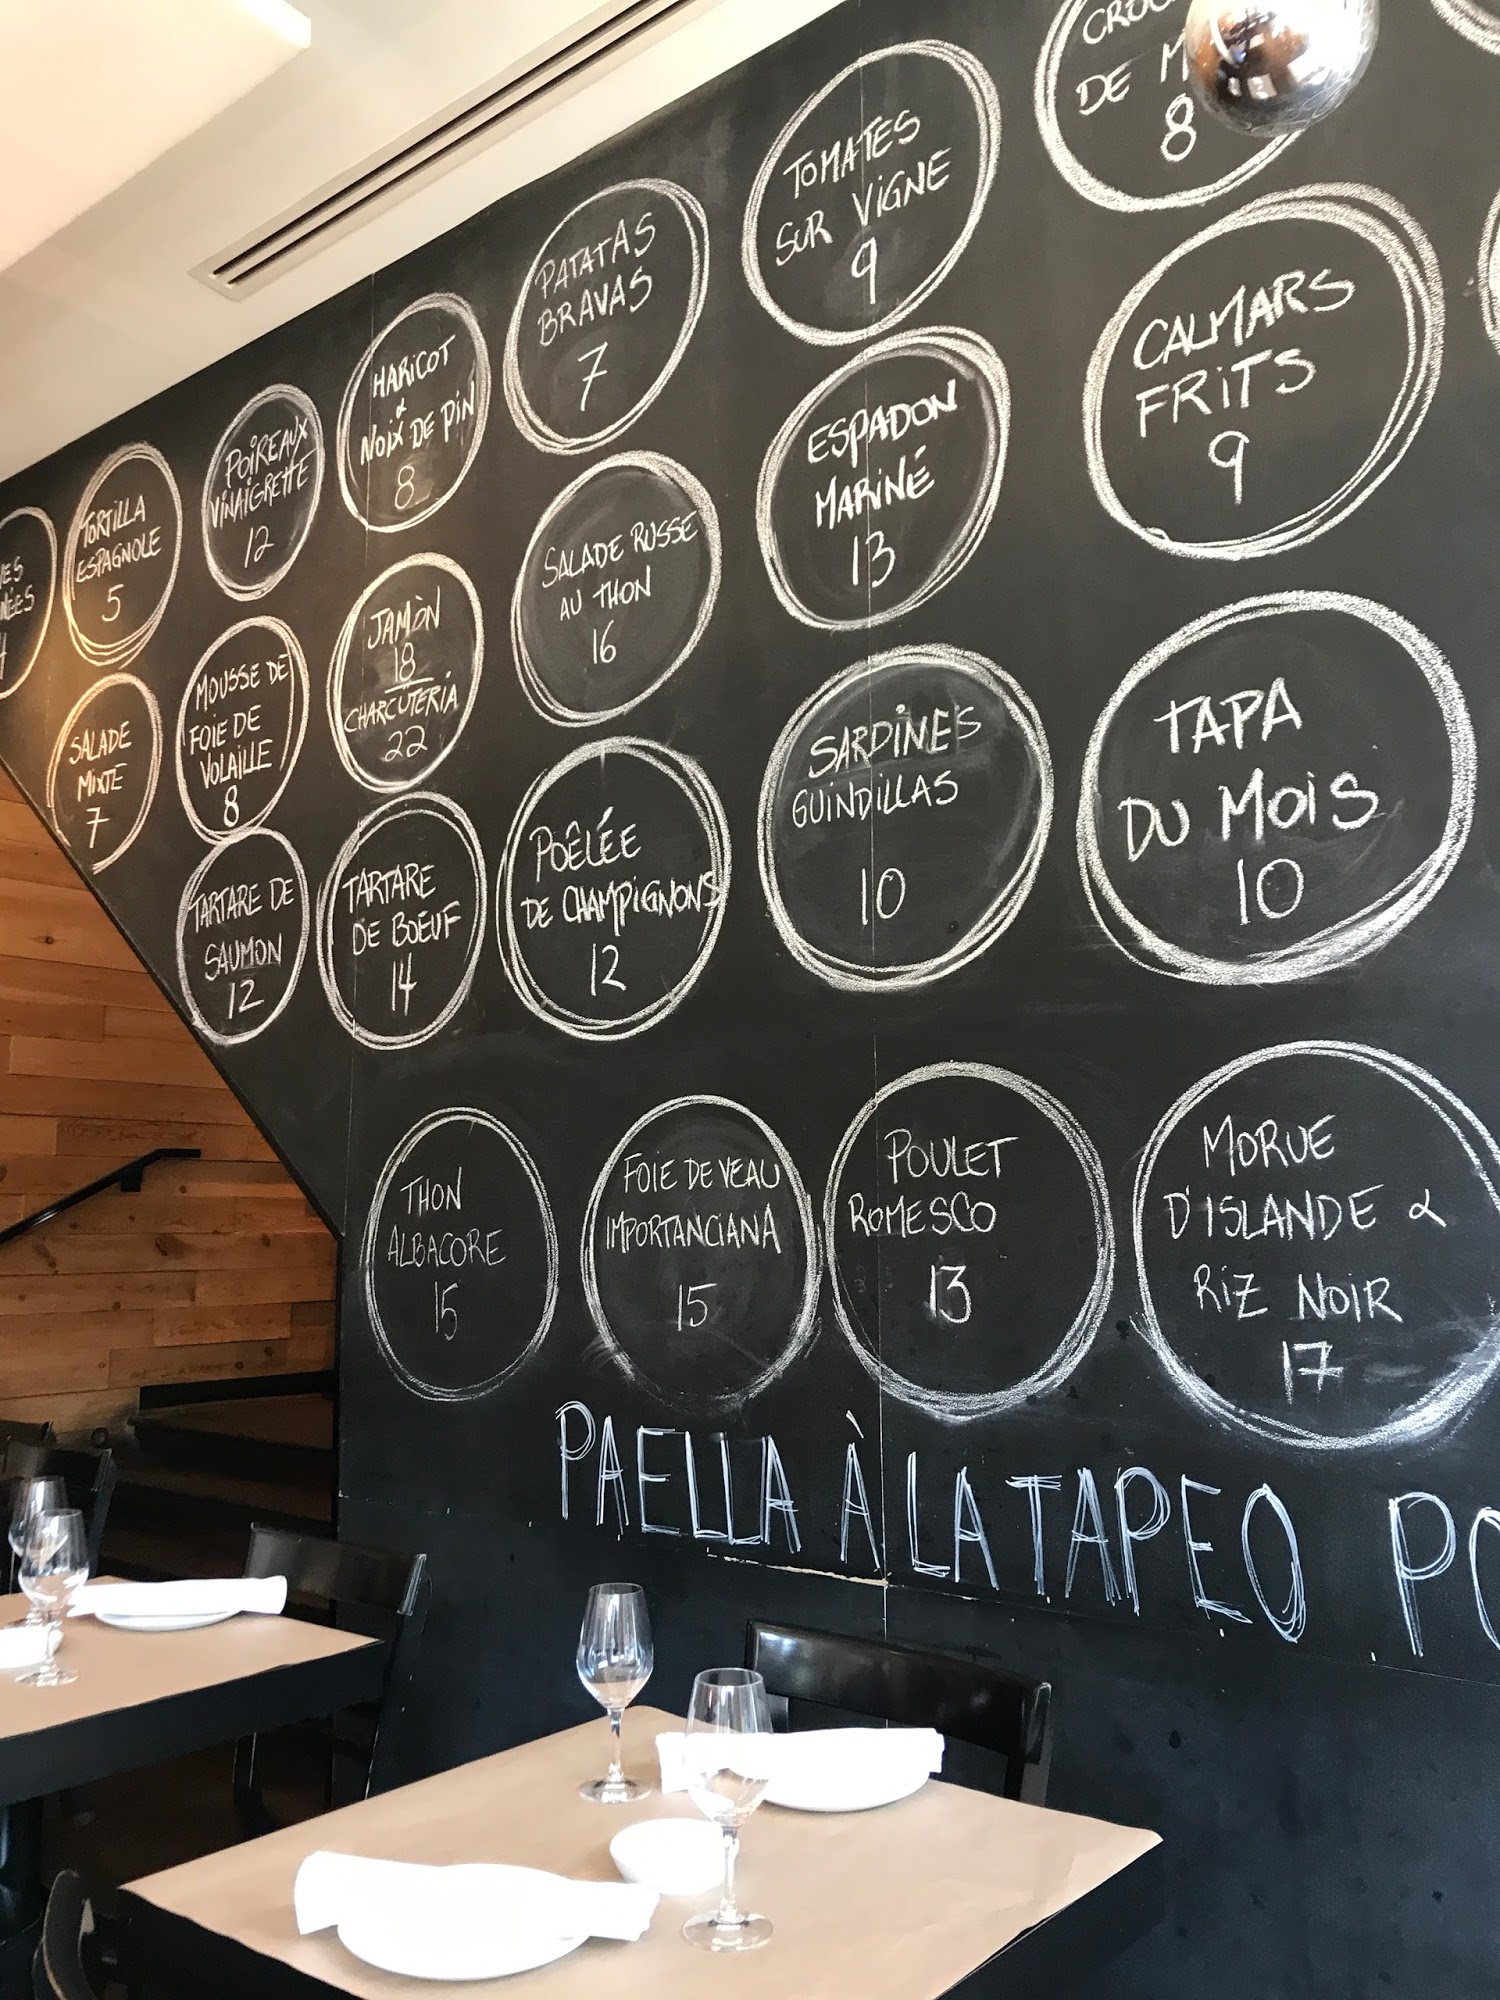 TOMATES
SUR VIGNE
9
DE
8
PATATAS
BRAVAS
7
HARICOT
&
NOIX DE PIN
8
POIREAUX
VINAIGRETTE
12
TORTILLA
ESPAGNOLE
5
CALMARS
FRITS
9
ESPADON
MARINÉ
13
SALADE RUSSE
AU THON
16
JAMÒN
18
CHARCUTERIA
22
MOUSSE DE
FOIE DE
VOLAILLE
8
SALADE
MIXTE
7
TAPA
DU MOIS
10
SARDINES
GUINDILLAS
10
POÊLÉE
DE CHAMPIGNONS
12
TARTARE
DE BOEUF
14
TARTARE DE
SAUMON
12
THON
ALBACORE
15
FOIE DE VEAU
IMPORTANCIANA
15
POULET
ROMESCO
13
MORUE
D'ISLANDE &
RIZ NOIR
17
PAELLA À LA TAPEO